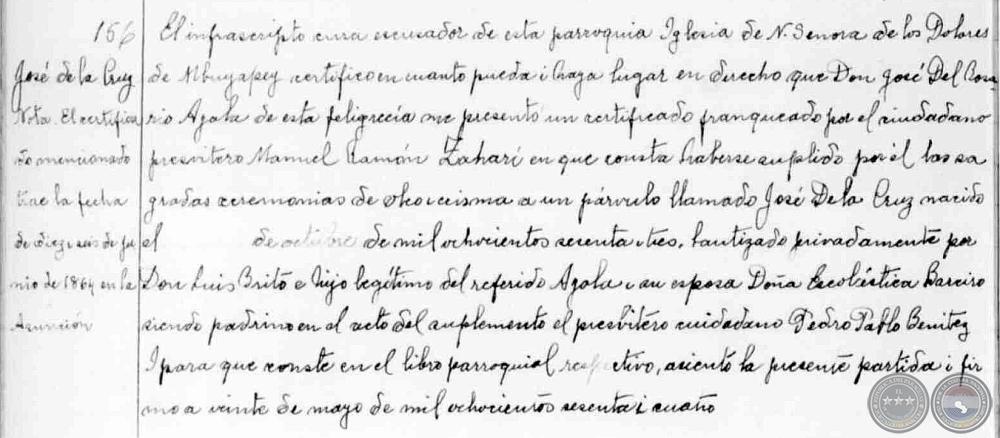 156
José de la Cruz
Nota. El certifica
do mencionado
trae la fecha
de diez i seis de ju
nio de 1864 en la
Asunción
El infrascripto cura escusador de esta parroquia Iglesia de N. Senora de los Dolores
de Mbuyapey certifico en cuanto pueda i haga lugar en derecho que Don José Del Rosa
rio Ayala de esta feligrecía me presento un certificado franqueado por el ciudadano
presvitero Manuel Ramón en que consta haberse suplido por él las sa
gradas ceremonias de oleo i crisma a un párvulo llamado José De la Cruz nacido
el de octubre de mil ochocientos sesenta i tres, bautizado privadamente por
Don Luis Brito e hijo legítimo del referido Ayala i su esposa Doña Escolástica Barciro
siendo padrino en el acto del suplemento el presbitero cuidadano Pedro Pablo Benitez
I para que conste en el libro parroquial respectivo, asiento la presente partida i fir
mo a veinte de mayo de mil ochocientos sesenta i cuatro